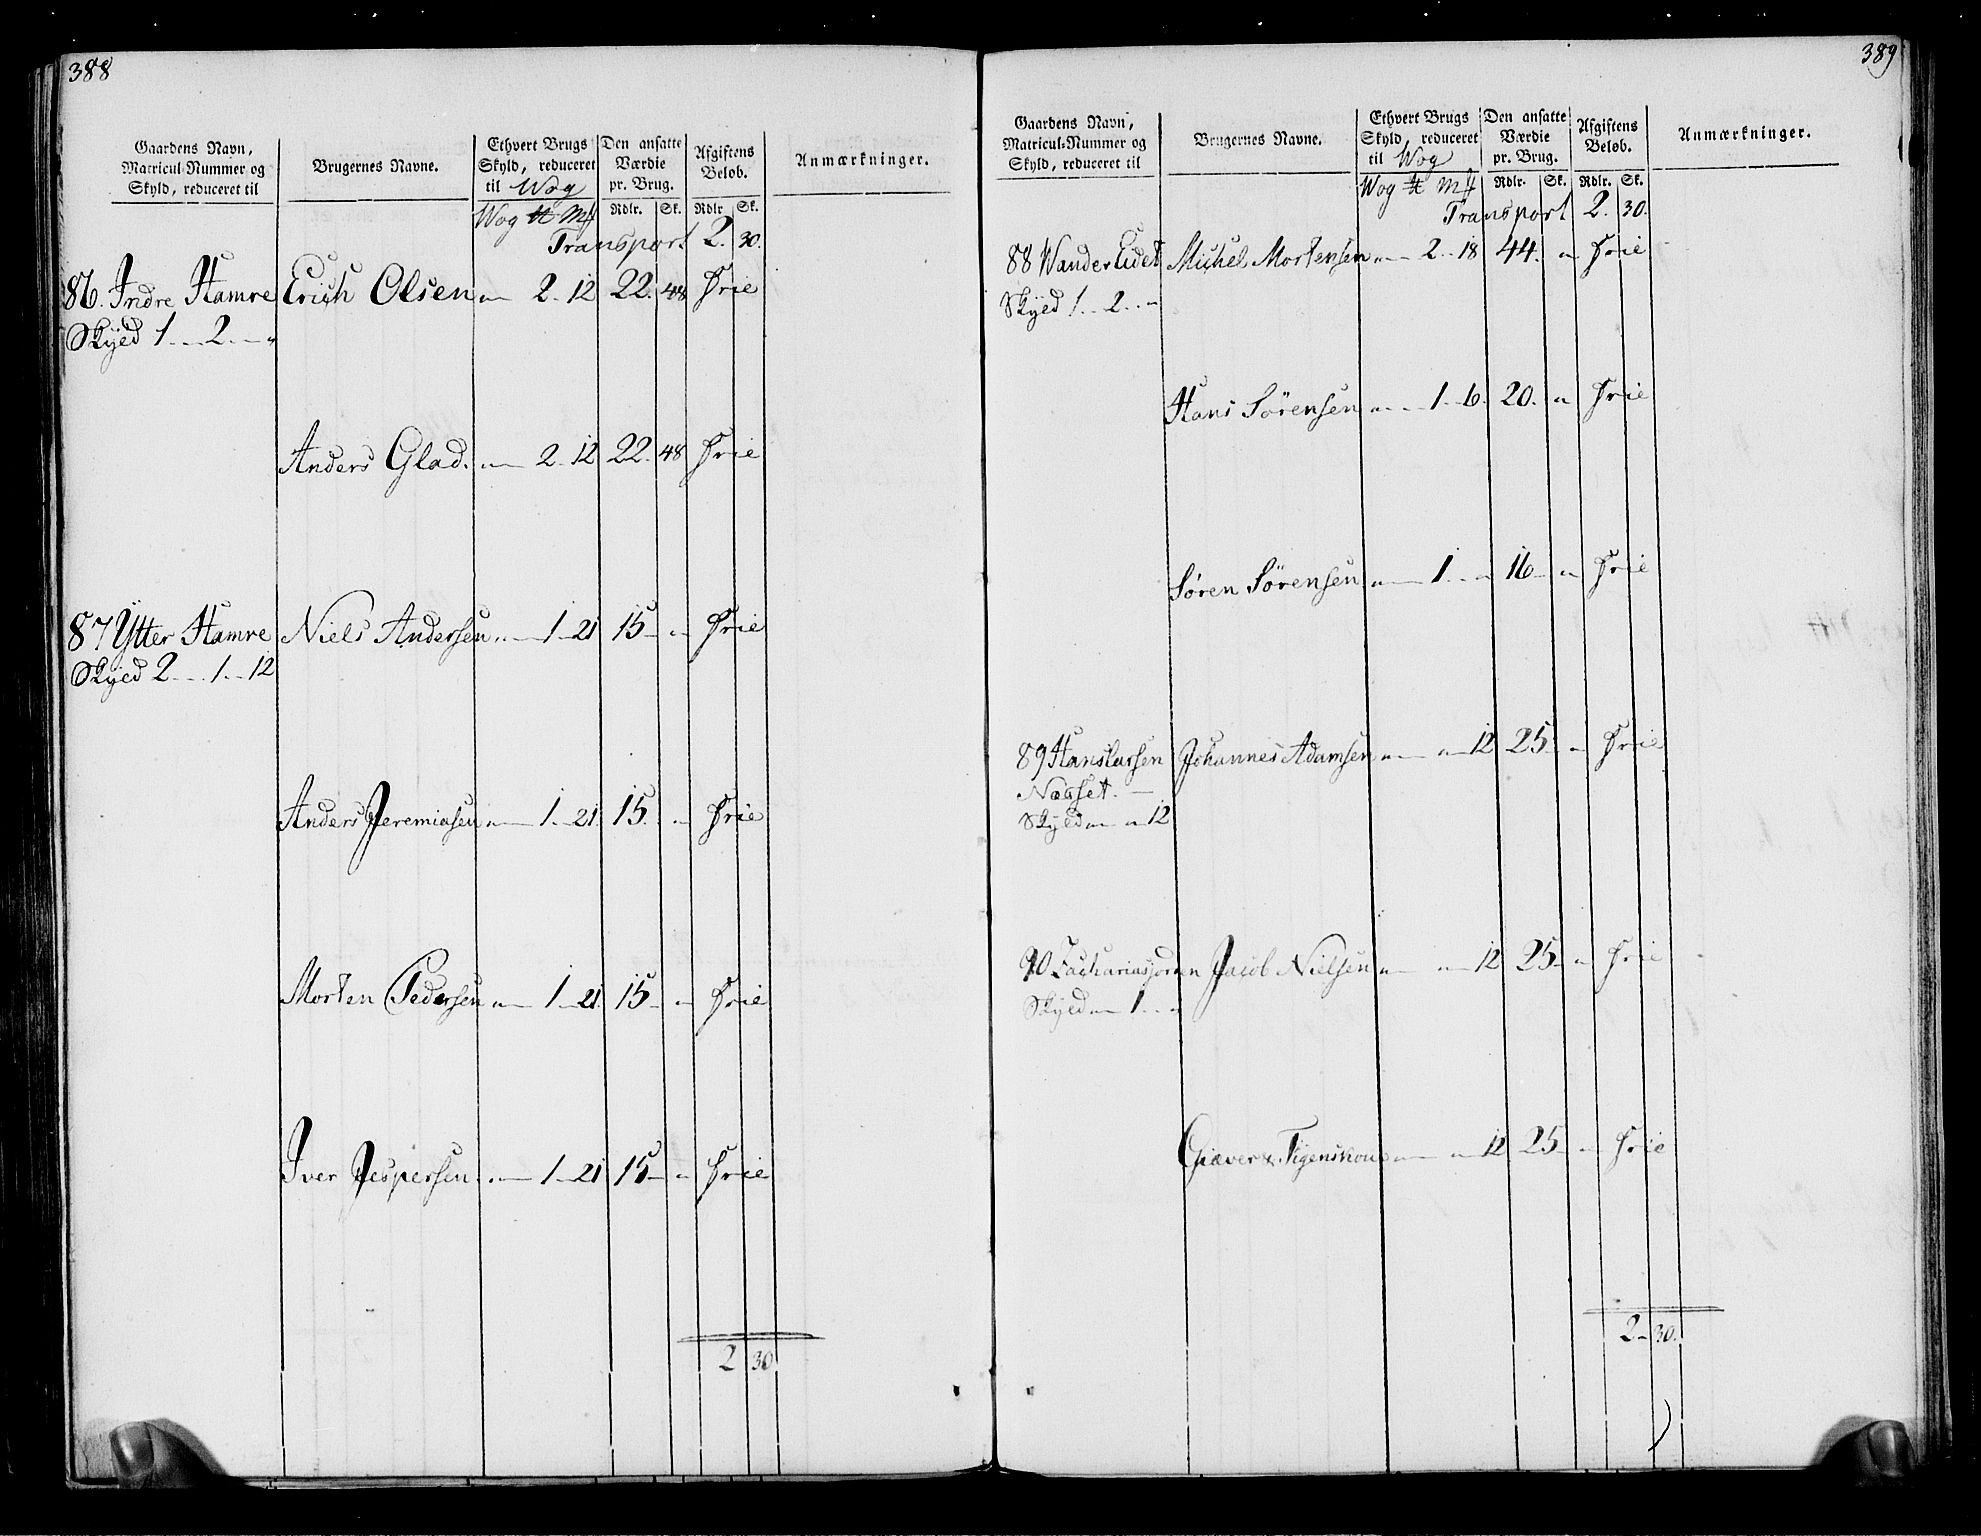 388
Gaardens Navn, Matricul-Nummer og Skyld, reduceret til
Brugernes Navne.
Ethvert Brugs Skyld, reduceret til Wog
Den ansatte Værdie pr. Brug.
Afgiftens Beløb.
Anmærkninger.
Wog ℔ Mk Rdlr. Sk. Rdlr Sk.
Transport 2. 30.
86. Indre Hamre Erich Olsen " 2. 12 22. 48 Frie
Skyld 1 - 2 - "
Anders Glad. " 2. 12 22. 48 Frie
87 Ytter Hamre Niels Andersen " 1 - 21 15 - " Frie
Skyld 2 - 1 - 12
Anders Jeremiasen " 1 - 21 15. " Frie
Morten Pedersen " 1 - 21 15 - " Frie
Iver Jespersen " 1 - 21 15 - " Frie
2 30
389
Gaardens Navn, Matricul-Nummer og Skyld, reduceret til
Brugernes Navne.
Ethvert Brugs Skyld, reduceret til Wog
Den ansatte Værdie pr. Brug.
Afgiftens Beløb.
Anmærkninger.
Wog ℔ Mk Rdlr. Sk. Rdlr. Sk.
Transport 2. 30.
88 Wander Eidet Michel Mortensen " 2 - 18 44. " Frie
Skyld 1 - 2 - "
Hans Sörensen " 1 - 6. 20. " Frie
Søren Sörensen " 1 - " 16 - " Frie
89 Hans Larsen Johannes Adamsen " " 12 25 - " Frie
Næsset. -
Skyld " " 12
90 Zachariasjorden Jacob Nielsen " " 12 25 - " Frie
Skyld " 1 - "
Giæver & Figenskou " " 12 25 - " Frie
2 - 30.